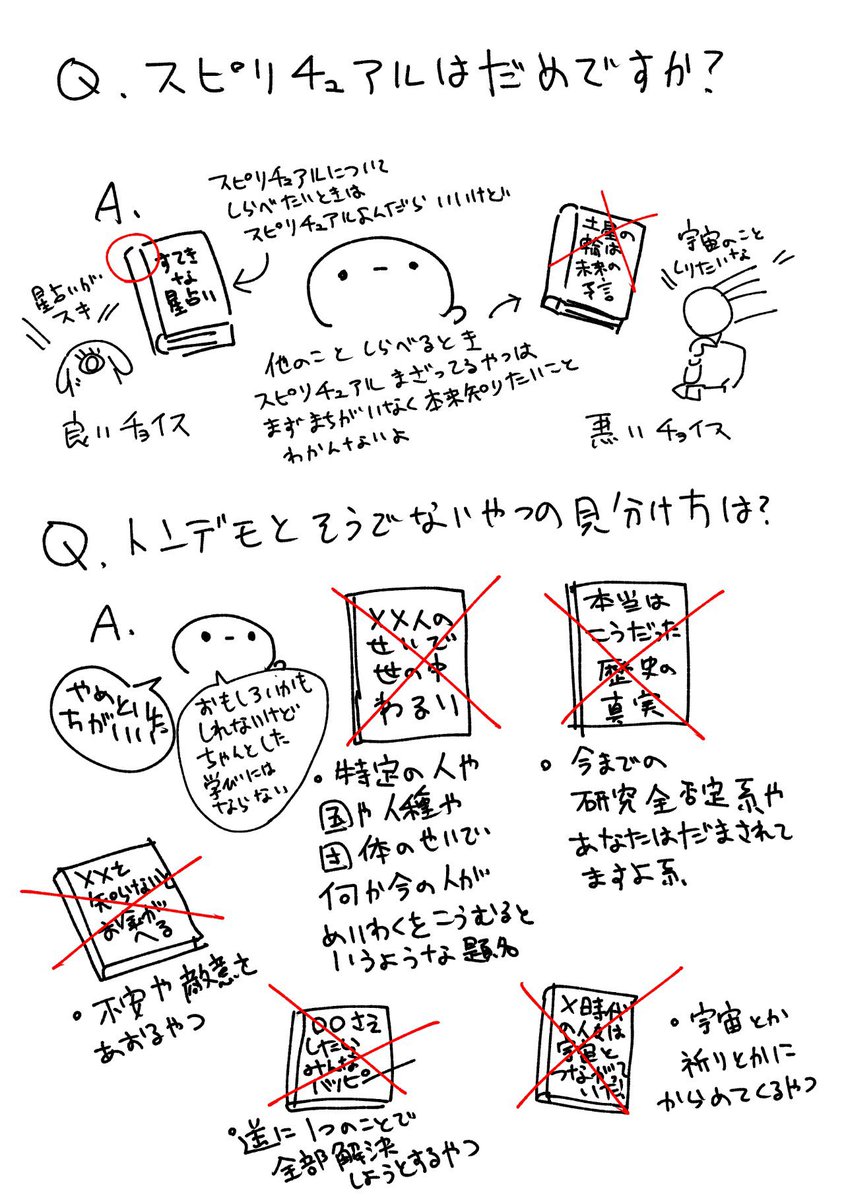 Q. スピリチュアルはだめですか?
A.
スピリチュアルについて
しらべたいときは
スピリチュアルよんだら いいけど
すてき
な
星占い
星占いが
スキ
良いチョイス
他のこと しらべるとき
スピリチュアル まざってるやつは
まずまちがいなく本来知りたいこと
わかんないよ
土星の
輪は
未来の
予言
宇宙のこと
しりたいな
悪いチョイス
Q. トンデモとそうでないやつの見分け方は?
A.
やめといた
ちがいい
おもしろいかも
しれないけど
ちゃんとした
学びには
ならない
××人の
せいで
世の中
わるい
・特定の人や
国や人種や
団体のせいで
何か今の人が
めいわくをこうむると
いうような題名
本当は
こうだった
歴史の
真実
・今までの
研究全否定系や
あなたはだまされて
ますよ系
××を
知らないと
お金が
へる
・不安や敵意を
あおるやつ
○○さえ
したい
みんな
ハッピー
・逆に1つのことで
全部解決
しようとするやつ
×時代
の人々は
宇宙と
つながって
いた
・宇宙とか
祈りとかに
からめてくるやつ